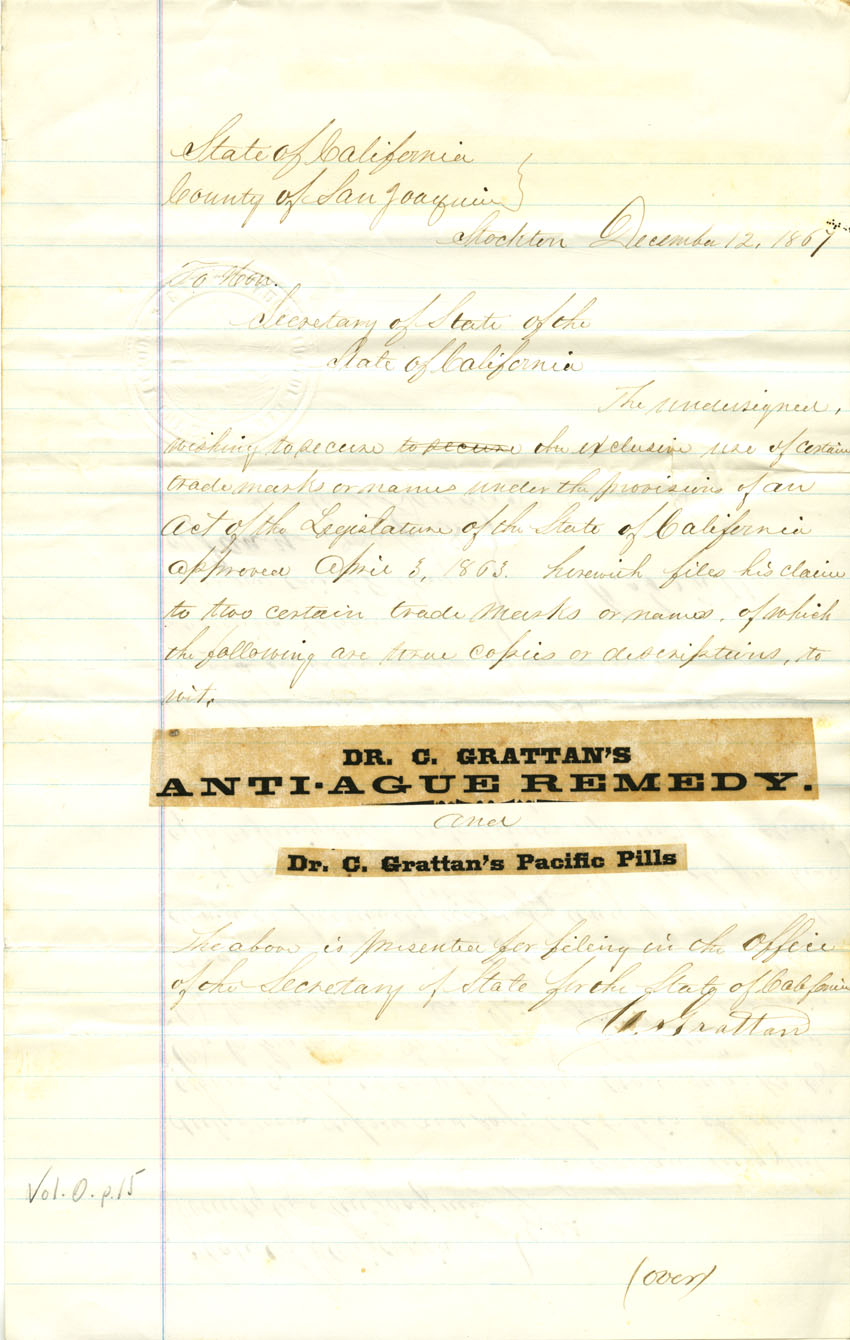 State of California
County of San Joaquin
Stockton December 12, 1867
To Hon.
Secretary of State of the
State of California
The undersigned,
wishing to secure to secure the exclusive use of certain
trade marks or names under the provisions of an
Act of the Legislature of the State of California
approved April 3, 1863. herewith files his claim
to two certain trade marks or names, of which
the following are true copies or descriptions, to
wit.
DR. C. GRATTAN'S
ANTI-AGUE REMEDY.
and
Dr. C. Grattan's Pacific Pills
The above is presented for filing in the office
of the Secretary of State for the State of California
C. Grattan
Vol. O. p. 15
(over)